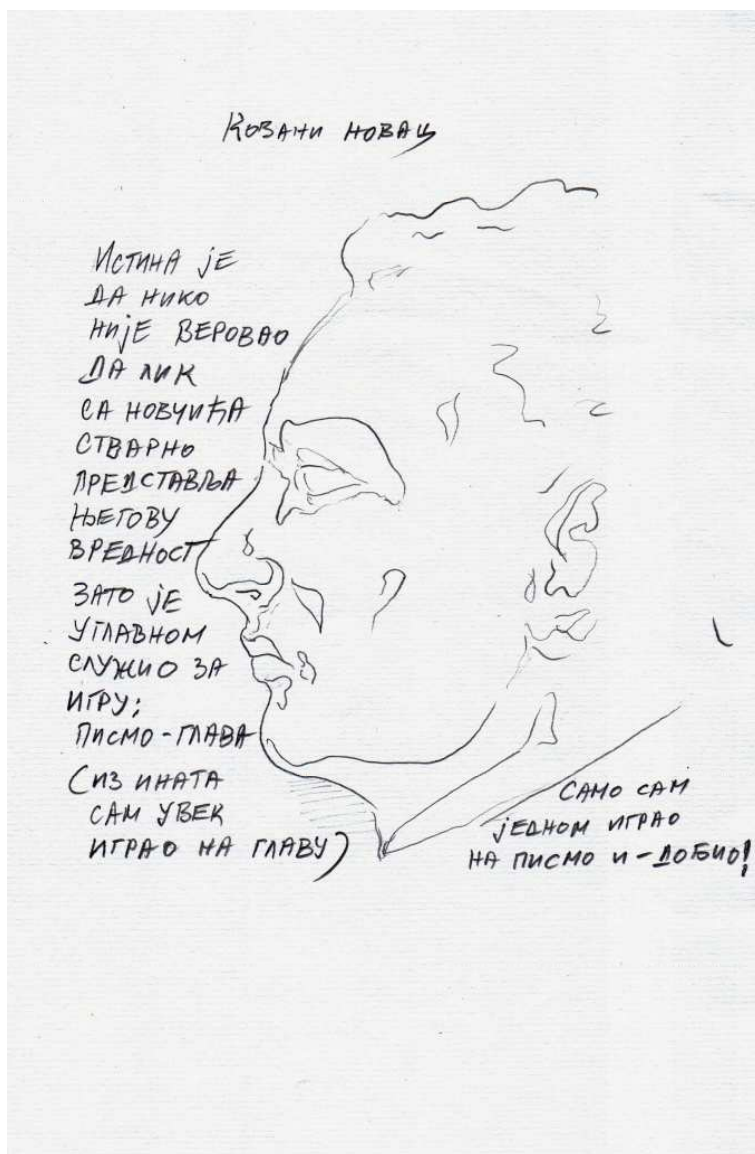 Ковани новац
Истина је
да нико
није веровао
да лик
са новчића
стварно
представља
његову
вредност
зато је
углавном
служио за
игру;
писмо-глава
(из ината
сам увек
играо на главу)
само сам
једном играо
на писмо и – добио!